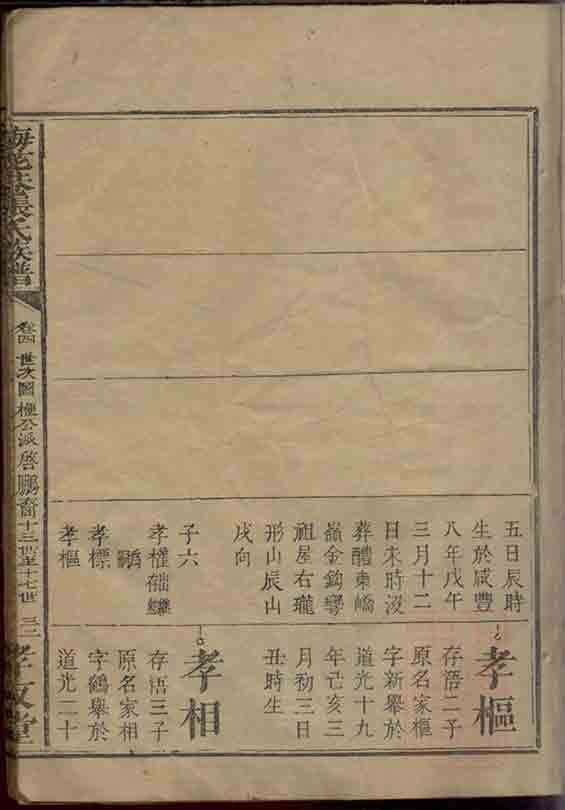 五日辰時
生於咸豐
八年戊午
三月十二
日未時沒
葬醴東嶠
嶺金鈎彎
祖屋右瓏
形山辰山
戌向
子六
孝權
孝標
孝樞
孝樞
存語二子
原名家樞
字新舉於
道光十九
年己亥三
月初三日
丑時生
孝相
存語三子
原名家相
字鶴舉於
道光二十
張氏族譜
卷四 世次圖 權公派啓鵬裔十三世至十七世 三二
孝友堂